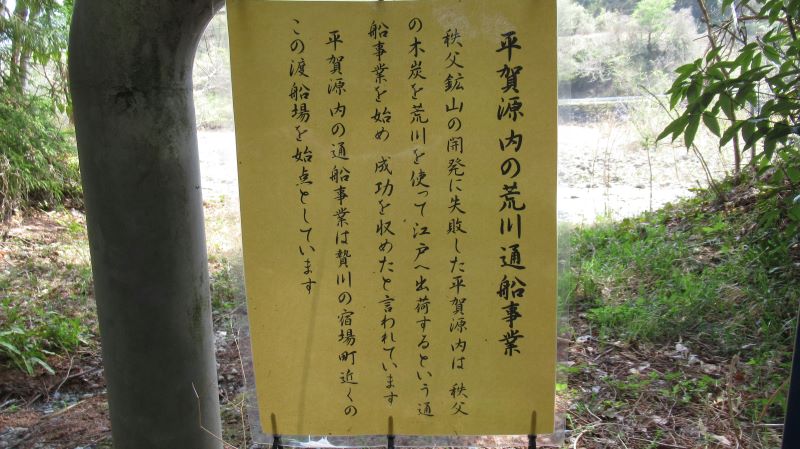 平賀源内の荒川通船事業
秩父鉱山の開発に失敗した平賀源内は 秩父
の木炭を荒川を使って江戸へ出荷するという通
船事業を始め 成功を収めたと言われています
平賀源内の通船事業は贄川の宿場町近くの
この渡船場を始点としています